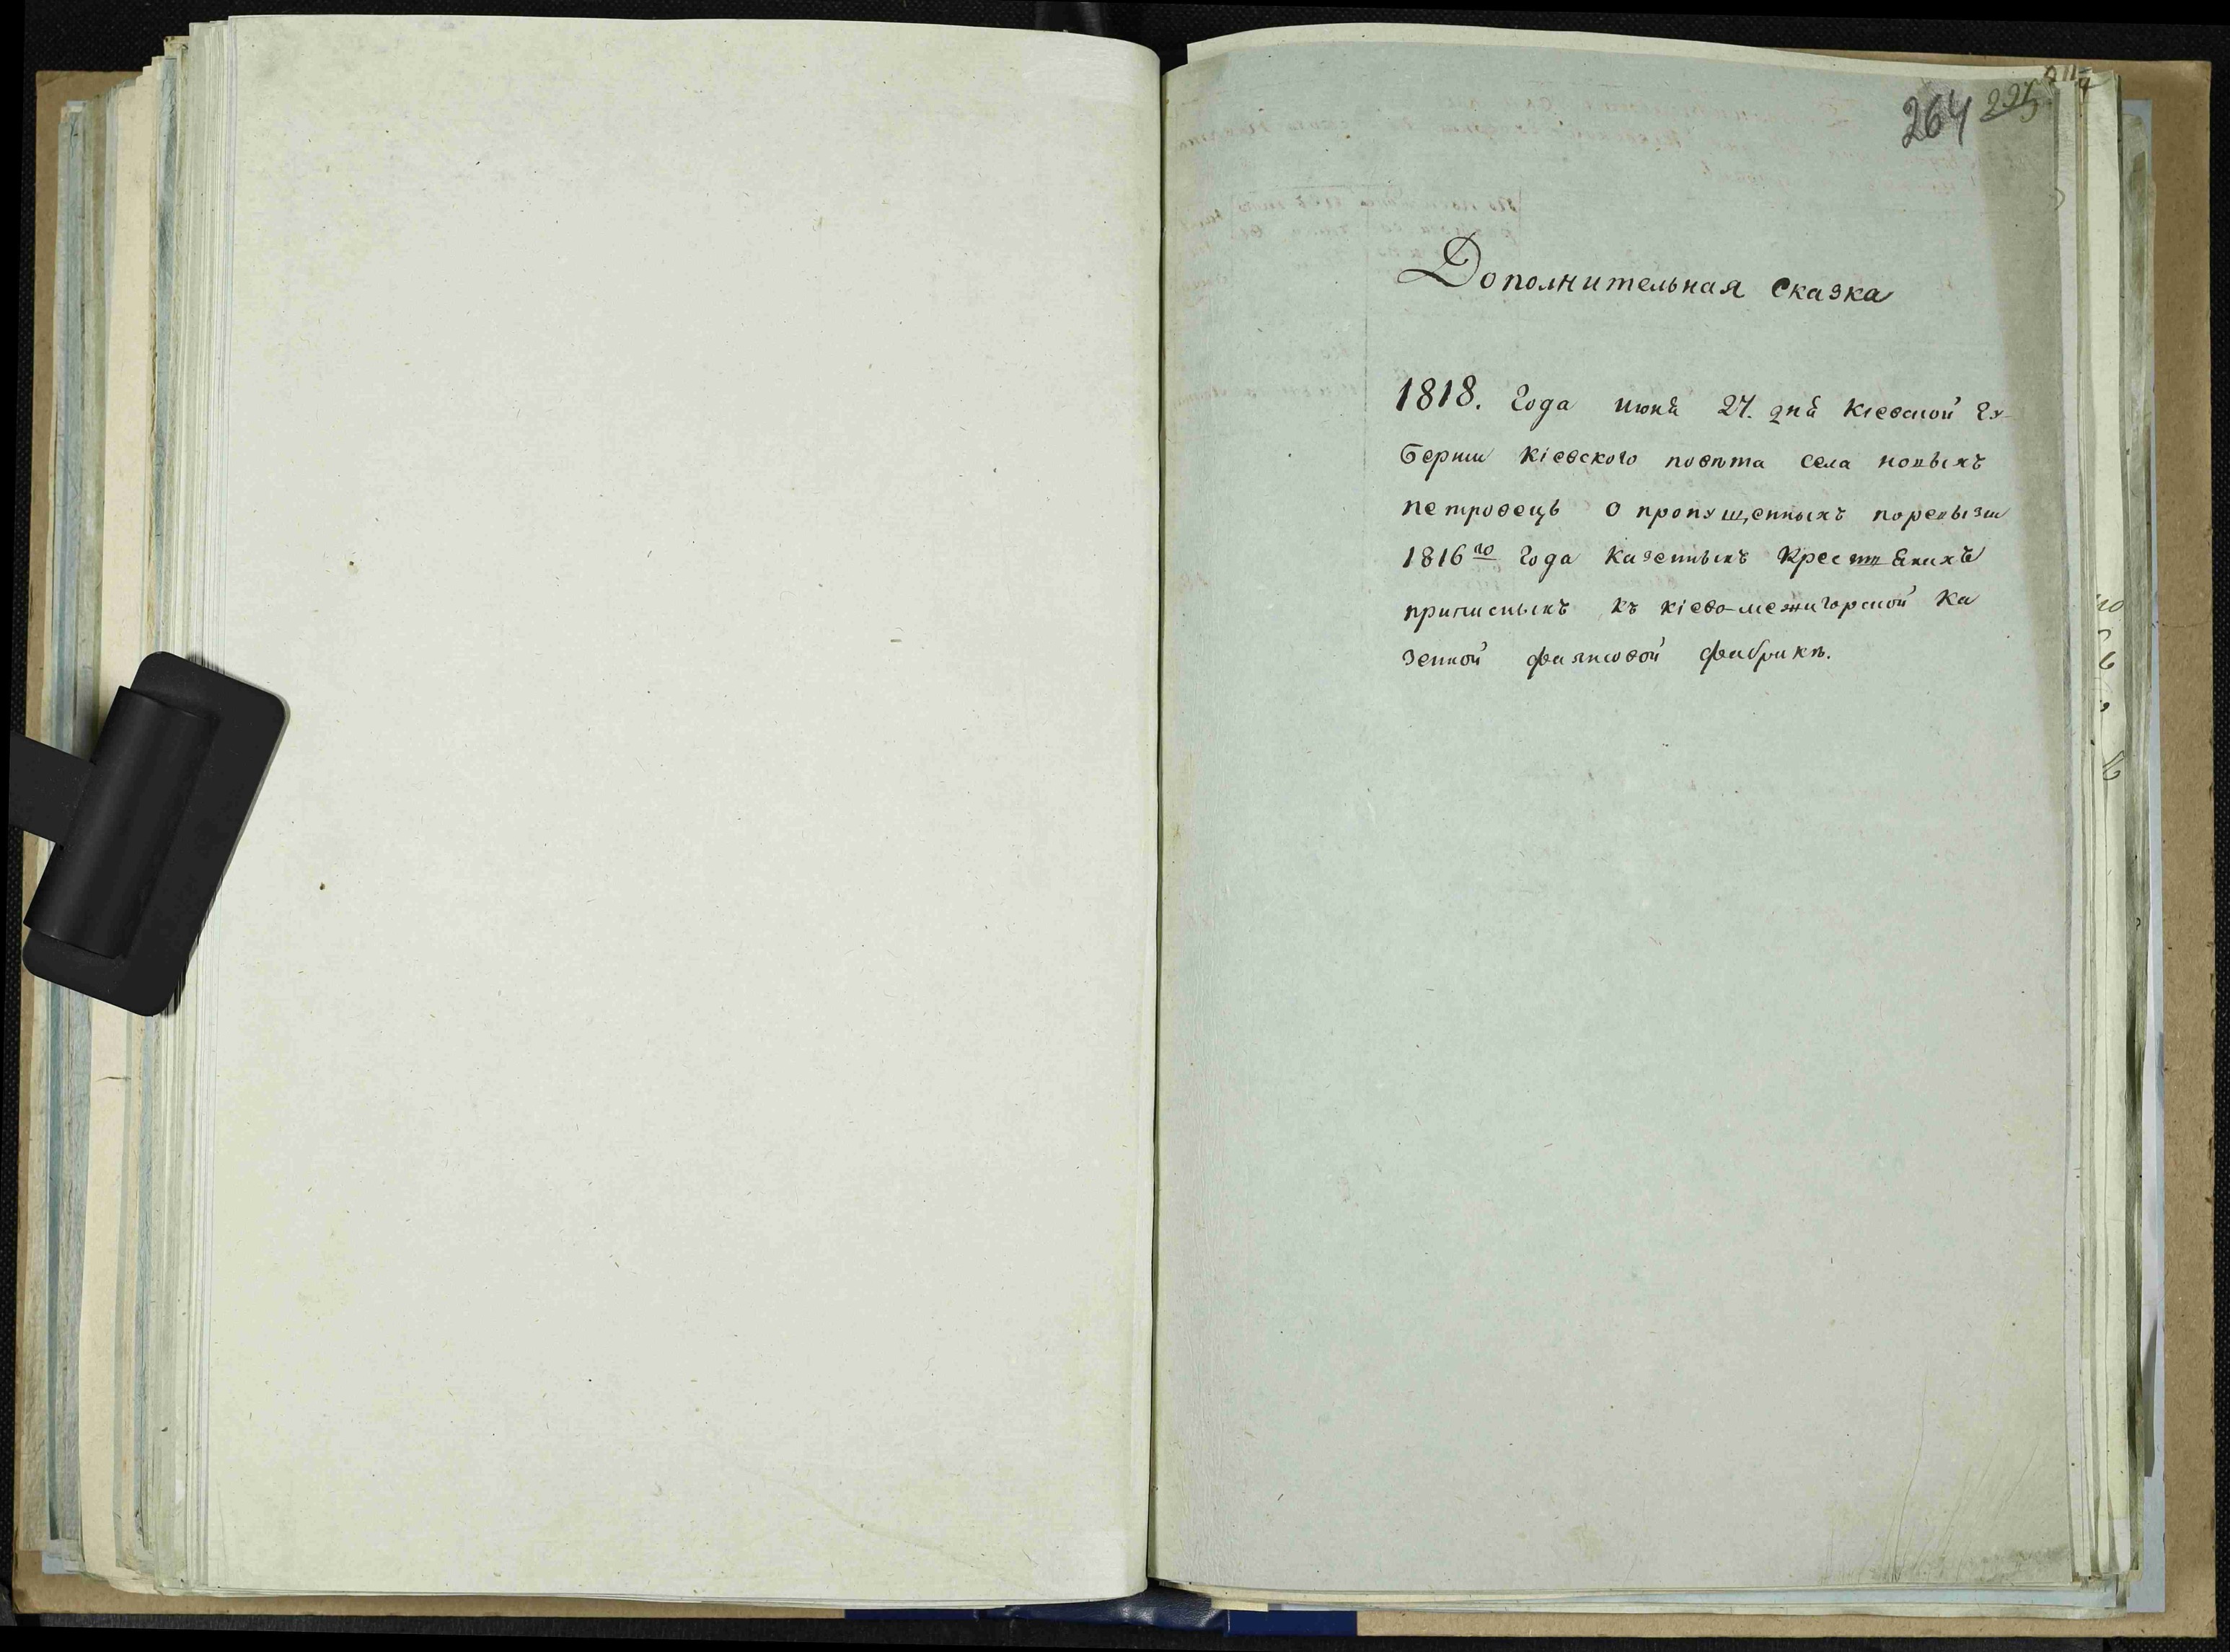 264
Дополнительная Сказка
1818. Года июня 27. дня Кіевской Гу-
берніи Кіевского повѣта села новыхъ
петровецъ О пропущенныхъ поревызіи
1816го Года казенныхъ Крестьянахъ
приписныхъ къ кіево-межигорской Ка
зенной фаянсовой фабрикѣ.